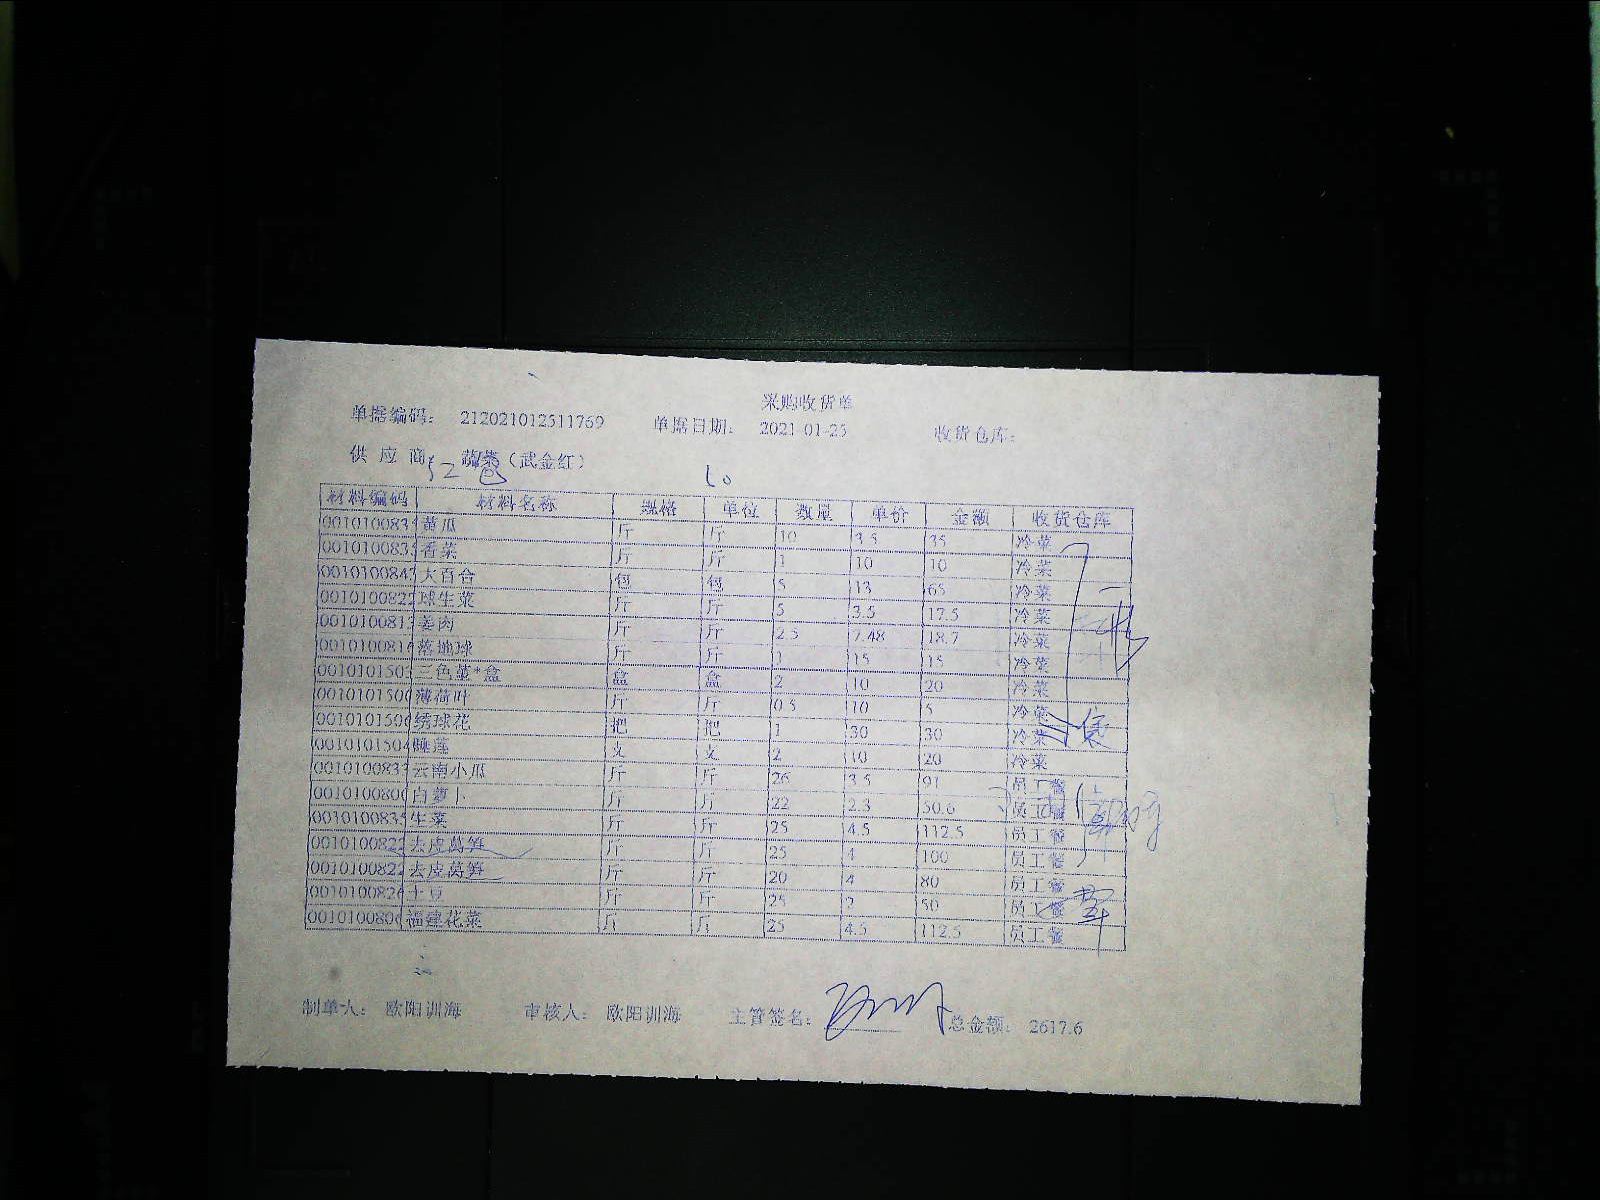 采购收货单
单据编码： 212021012511769 单据日期： 2021-01-25 收货仓库：
供 应 商 蔬菜（武金红）
材料编码 材料名称 规格 单位 数量 单价 金额 收货仓库
0010100834 黄瓜 斤 斤 10 3.5 35 冷菜
0010100835 香菜 斤 斤 1 10 10 冷菜
0010100847 大百合 包 包 5 13 65 冷菜
0010100822 球生菜 斤 斤 5 3.5 17.5 冷菜
0010100813 姜肉 斤 斤 2.5 7.48 18.7 冷菜
001010081 落地球 斤 斤 1 15 15 冷菜
001010150 三色堇*盒 盒 盒 2 10 20 冷菜
0010101500 薄荷叶 斤 斤 0.5 10 5 冷菜
0010101506 绣球花 把 把 1 30 30 冷菜
0010101504 睡莲 支 支 2 10 20 冷菜
0010100833 云南小瓜 斤 斤 26 3.5 91 员工餐
0010100800 白萝卜 斤 斤 22 2.3 50.6 员工餐
0010100835 生菜 斤 斤 25 4.5 112.5 员工餐
0010100822 去皮莴笋 斤 斤 25 4 100 员工餐
0010100822 去皮莴笋 斤 斤 20 4 80 员工餐
0010100826 土豆 斤 斤 25 2 50 员工餐
0010100806 福建花菜 斤 斤 25 4.5 112.5 员工餐
制单人： 欧阳训海 审核人： 欧阳训海 主管签名： 总金额： 2617.6